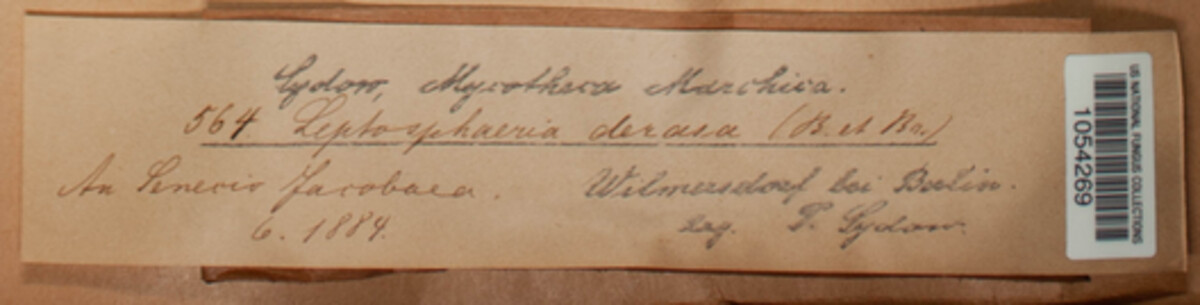 Sydow, Mycotheca Marchica.
564 Leptosphaeria derasa (B. et Br.)
An Senecio Jacobaea.
6. 1884.
Wilmersdorf bei Berlin.
leg. P. Sydow.
US NATIONAL FUNGUS COLLECTIONS
1054269